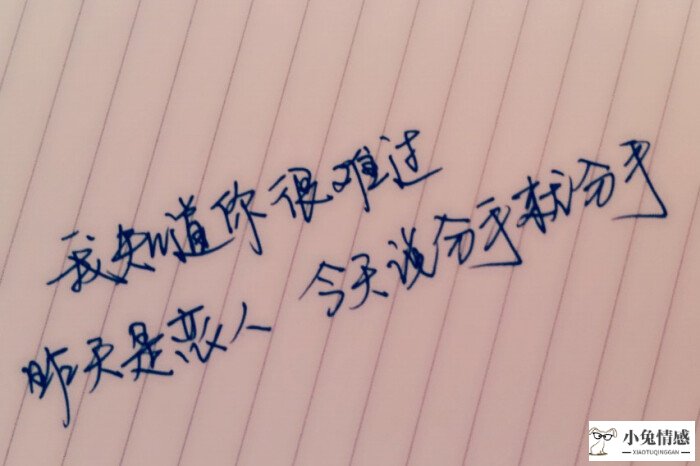 我知道你很难过
昨天是恋人 今天说分手就分手
小兔情感
XIAOTUQINGGAN